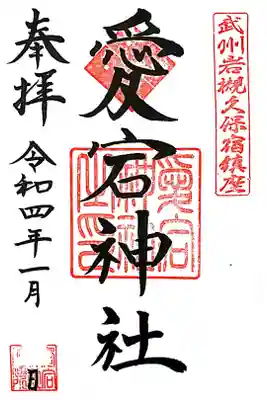 武州岩槻久保宿鎮座
愛宕神社
愛宕神社之印
奉拝
令和四年一月
日